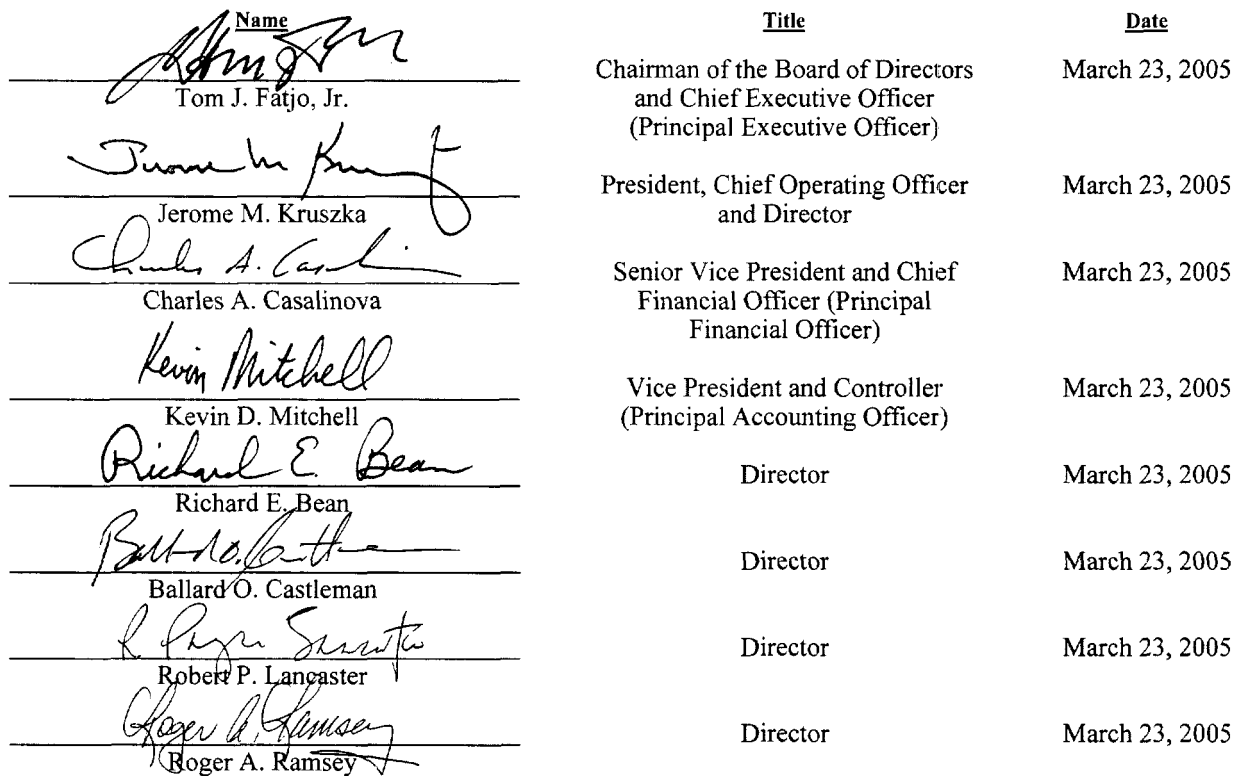 Name Title Date
Tom J. Fatjo, Jr. Chairman of the Board of Directors March 23, 2005
and Chief Executive Officer
(Principal Executive Officer)
Jerome M. Kruszka President, Chief Operating Officer March 23, 2005
and Director
Charles A. Casalinova Senior Vice President and Chief March 23, 2005
Financial Officer (Principal
Financial Officer)
Kevin Mitchell
Kevin D. Mitchell Vice President and Controller March 23, 2005
(Principal Accounting Officer)
Richard E. Bean
Richard E. Bean Director March 23, 2005
Ballard O. Castleman Director March 23, 2005
Robert P. Lancaster Director March 23, 2005
Roger A. Ramsey
Roger A. Ramsey Director March 23, 2005